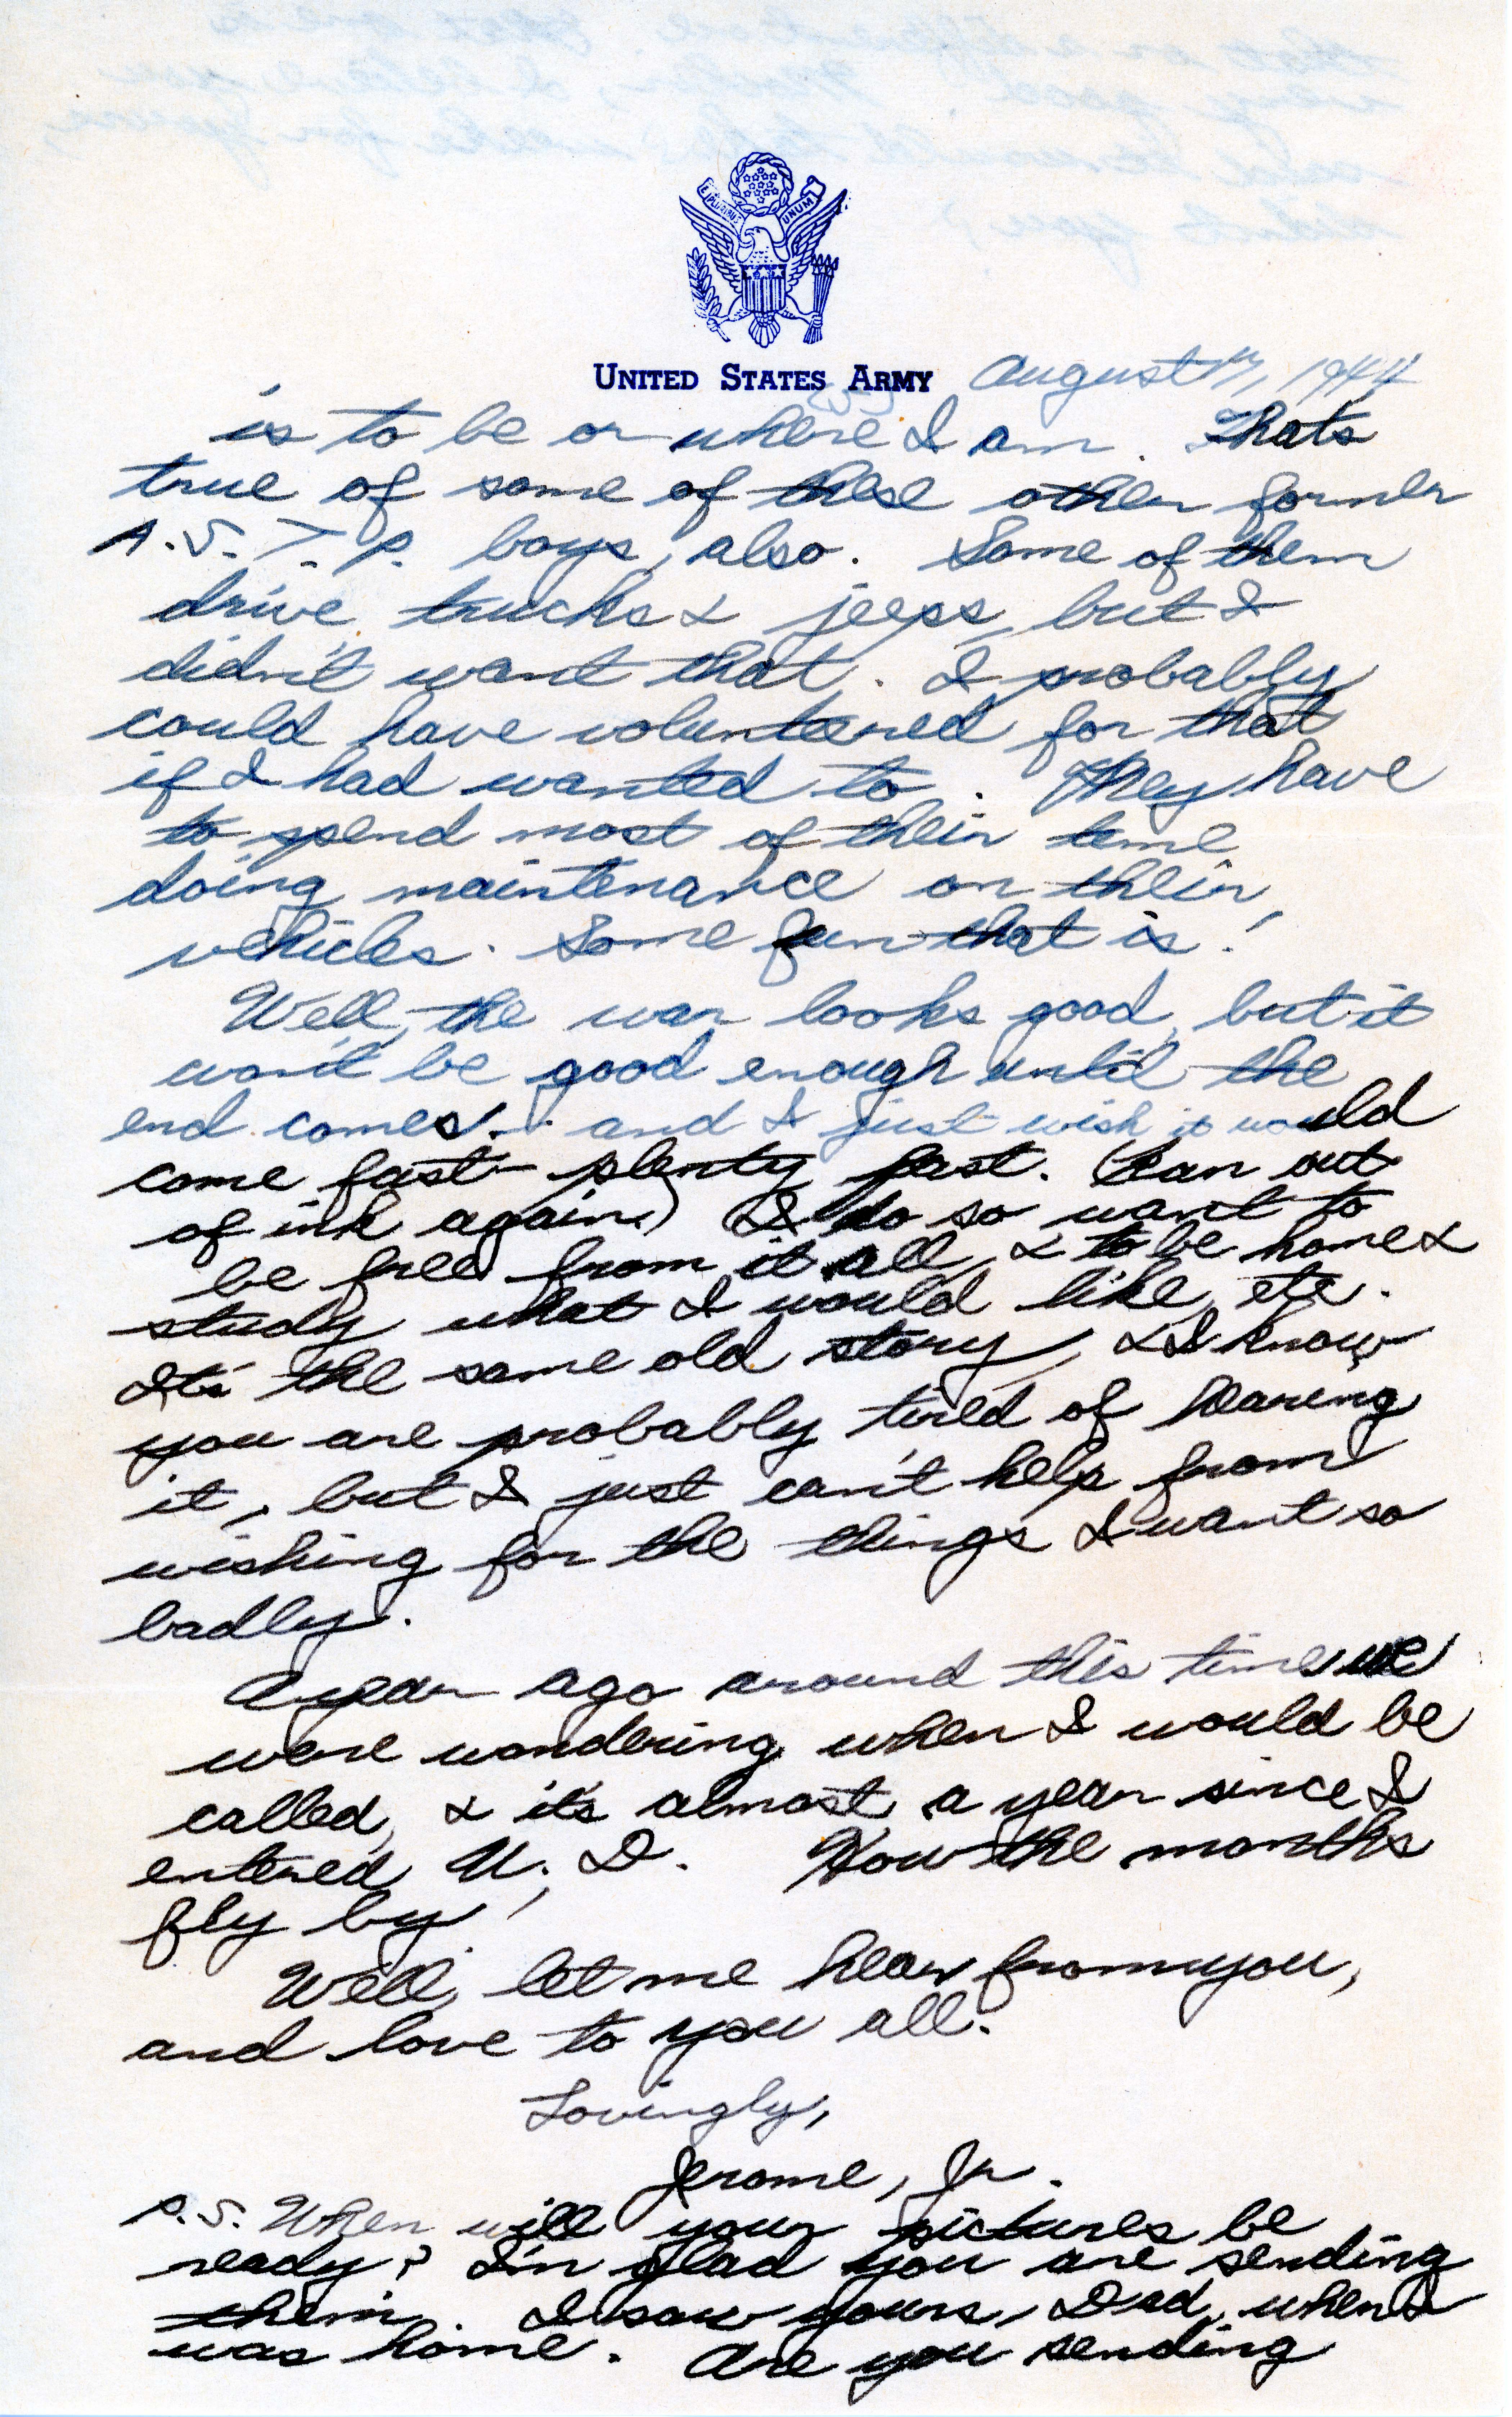 E PLURIBUS UNUM
UNITED STATES ARMY August 17, 1944
is to be or where I am. Thats
true of some of these other former
A.S.T.P. boys, also. Some of them
drive trucks & jeeps, but I
didn't want that. I probably
could have voluntered for that
if I had wanted to. They have
to spend most of their time
doing maintenance on their
vehicles. Some fun that is!
Well, the war looks good, but it
won't be good enough until the
end comes. and I just wish it would
come fast - plenty fast. (Ran out
of ink again.) I do so want to
be free from it all, & to be home &
study what I would like, etc.
It's the same old story, & I know
you are probably tired of hearing
it, but I just can't help from
wishing for the things I want so
badly.
A year ago around this time we
were wondering when I would be
called, & it's almost a year since I
entered U. D. How the months
fly by!
Well, let me hear from you,
and love to you all.
Lovingly,
Jerome, Jr.
P.S. When will your pictures be
ready? I'm glad you are sending
them. I saw yours, Dad, when I
was home. Are you sending